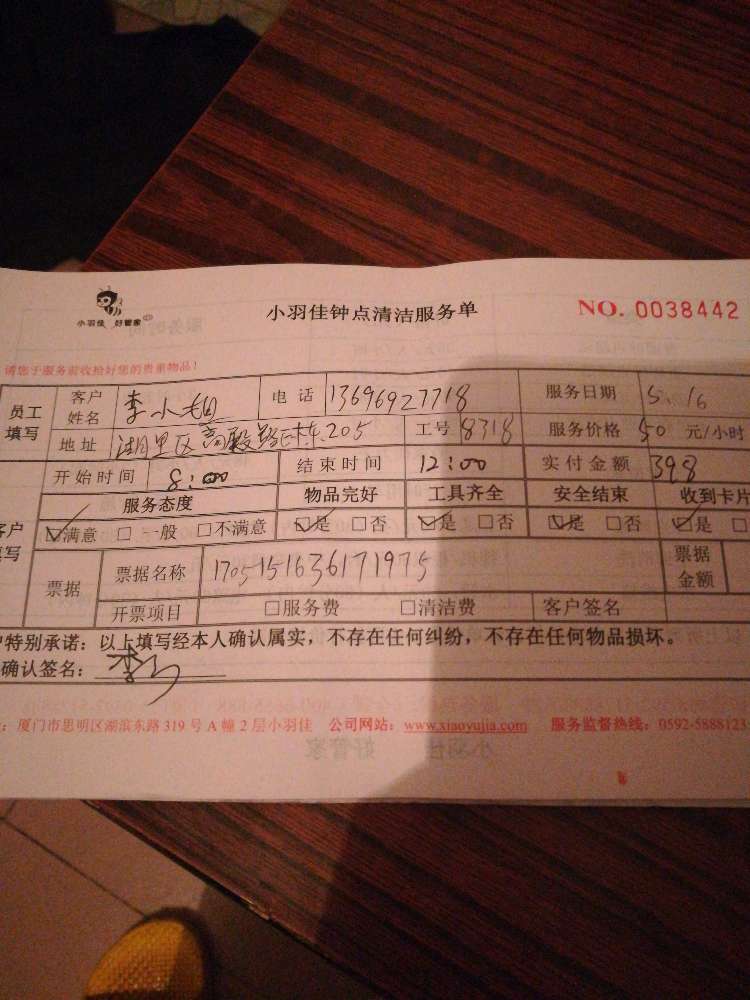 小羽佳 好管家
小羽佳钟点清洁服务单
NO. 0038442
请您于服务前收拾好您的贵重物品!
员工填写 客户姓名 李小姐 电话 13696927718 服务日期 5.16
地址 湖里区高殿 205 工号 8318 服务价格 50 元/小时
开始时间 8:00 结束时间 12:00 实付金额 398
服务态度 物品完好 工具齐全 安全结束 收到卡片
☑满意 □一般 □不满意 ☑是 □否 ☑是 □否 ☑是 □否 ☑是 □
票据 票据名称 1705151636171975 票据金额
开票项目 □服务费 □清洁费 客户签名
特别承诺：以上填写经本人确认属实，不存在任何纠纷，不存在任何物品损坏。
确认签名：李
厦门市思明区湖滨东路 319 号 A 幢 2 层小羽佳 公司网站：www.xiaoyujia.com 服务监督热线：0592-5888123